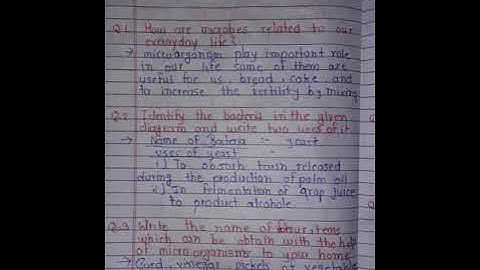 Q.1 How are microbes related to our
everyday life?
→ microorganism play important role
in our life some of them are
useful for us, bread, cake, and
to increase the fertility by mixing
Q.2 Identify the bacteria in the given
diagram and write two uses of it
→ Name of Bacteria :- yeast
uses of yeast :-
i) To absorb toxin released
during the production of palm oil
ii) In fermentation of grap juice
to product alcohole.
Q.3 Write the name of four items
which can be obtain with the help
of micro-organisms to your home
→ Curd, vinegar, pickels of vegetable